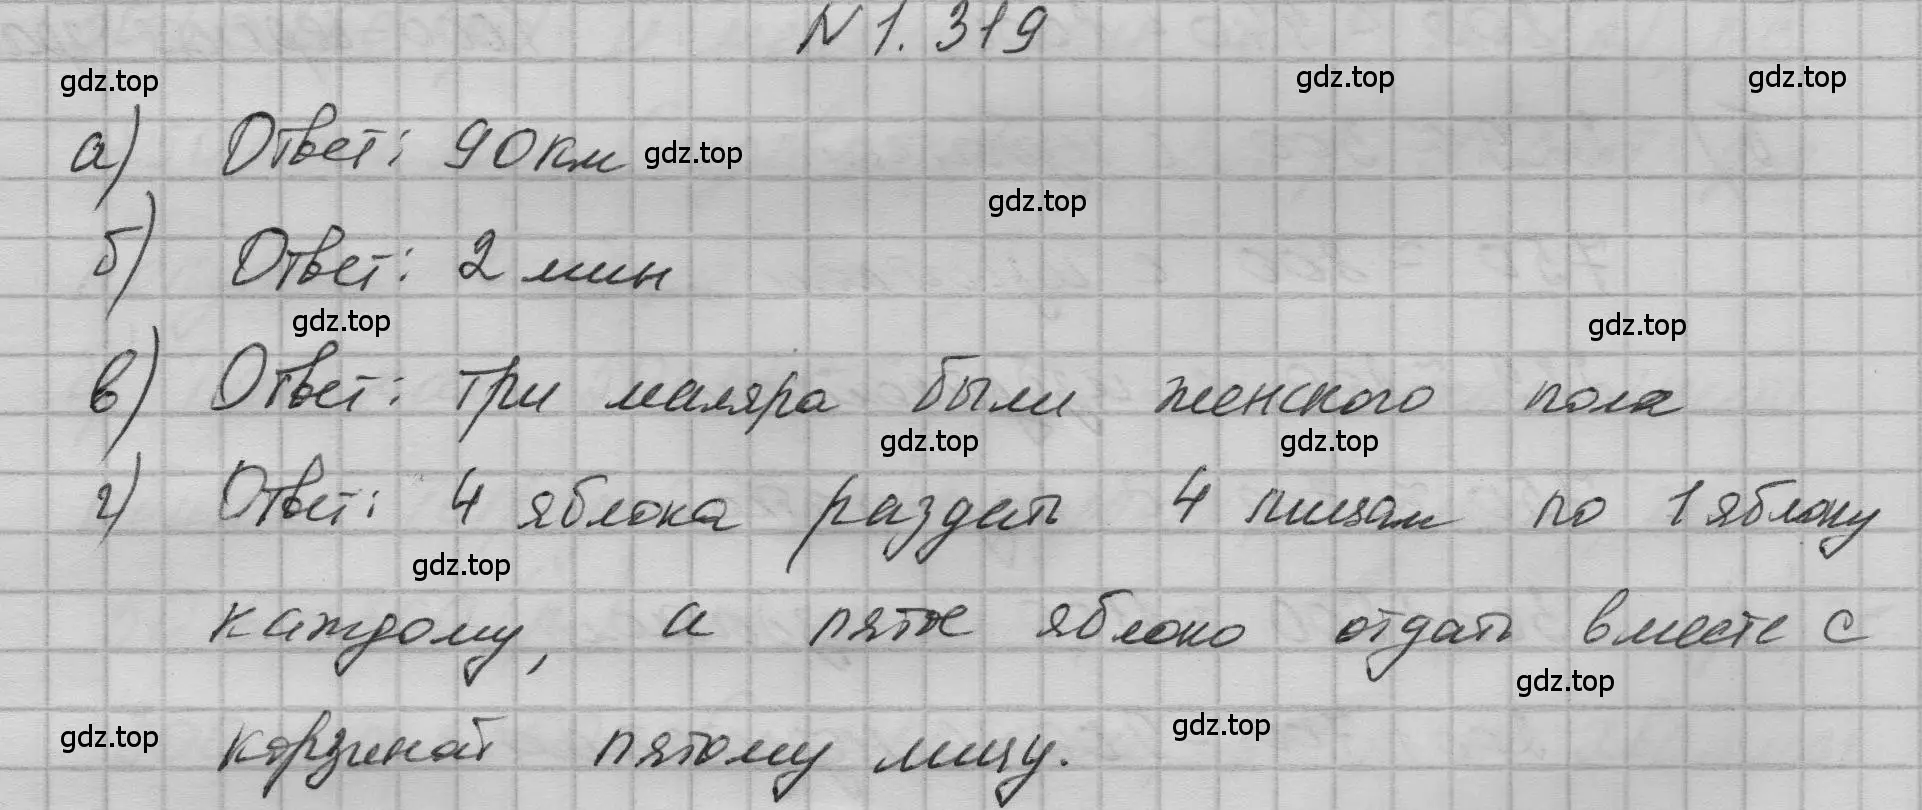 N 1. 319
gdz.top gdz.top gdz.top
а) Ответ: 90 км gdz.top
gdz.top
б) Ответ: 2 мин
gdz.top gdz.top
в) Ответ: три маляра были женского пола
gdz.top gdz.top
г) Ответ: 4 яблока раздать 4 лицам по 1 яблоку
gdz.top
каждому, а пятое яблоко отдать вместе с
gdz.top
gdz.top корзиной пятому лицу. gdz.top